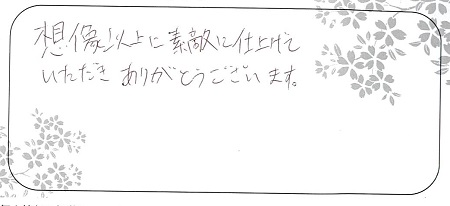 想像以上に素敵に仕上げて
いただき ありがとうございます。